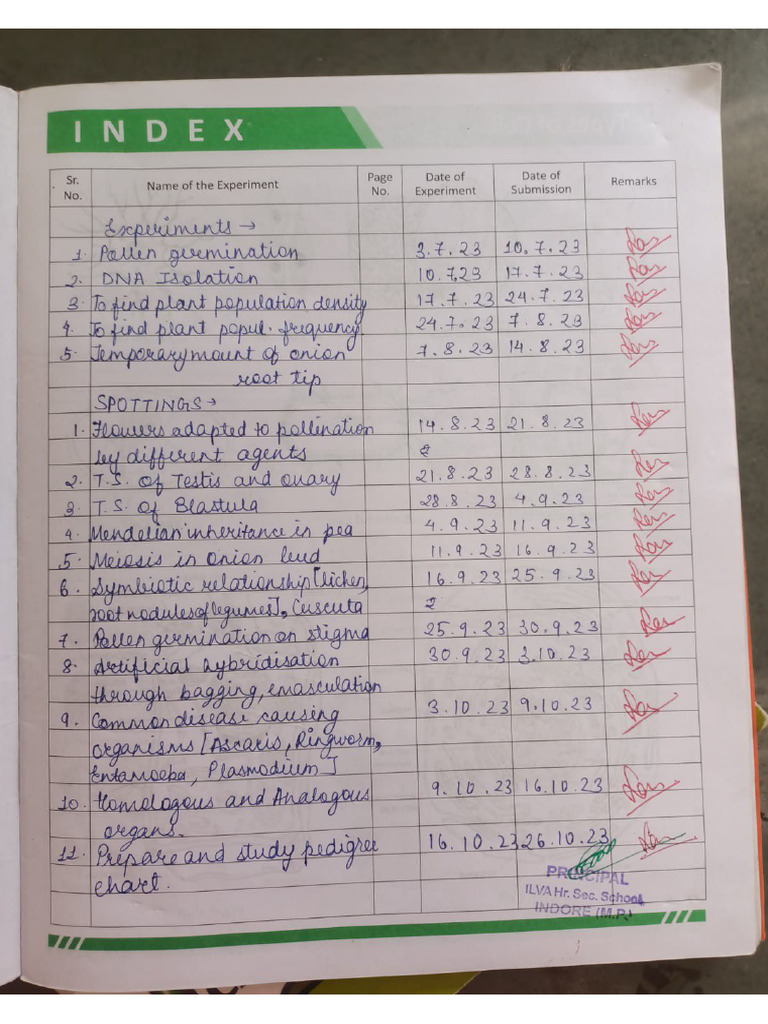 INDEX
Sr. No. Name of the Experiment Page No. Date of Experiment Date of Submission Remarks
Experiments →
1. Pollen germination 3.7.23 10.7.23
2. DNA Isolation 10.7.23 17.7.23
3. To find plant population density 17.7.23 24.7.23
4. To find plant popul. frequency 24.7.23 7.8.23
5. Temporary mount of onion 7.8.23 14.8.23
root tip
SPOTTINGS →
1. Flowers adapted to pollination 14.8.23 21.8.23
by different agents
2. T.S. of Testis and ovary 21.8.23 28.8.23
3. T.S. of Blastula 28.8.23 4.9.23
4. Mendelian inheritance in pea 4.9.23 11.9.23
5. Meiosis in onion bud 11.9.23 16.9.23
6. Symbiotic relationship [lichen, 16.9.23 25.9.23
root nodules of legumes], Cuscuta
7. Pollen germination on stigma 25.9.23 30.9.23
8. Artificial hybridisation 30.9.23 3.10.23
through bagging, emasculation
9. Common disease causing 3.10.23 9.10.23
organisms [Ascaris, Ringworm,
Entamoeba, Plasmodium]
10. Homologous and Analogous 9.10.23 16.10.23
organs.
11. Prepare and study pedigree 16.10.23 26.10.23
chart.
PRINCIPAL
ILVA Hr. Sec. School,
INDORE (M.P.)